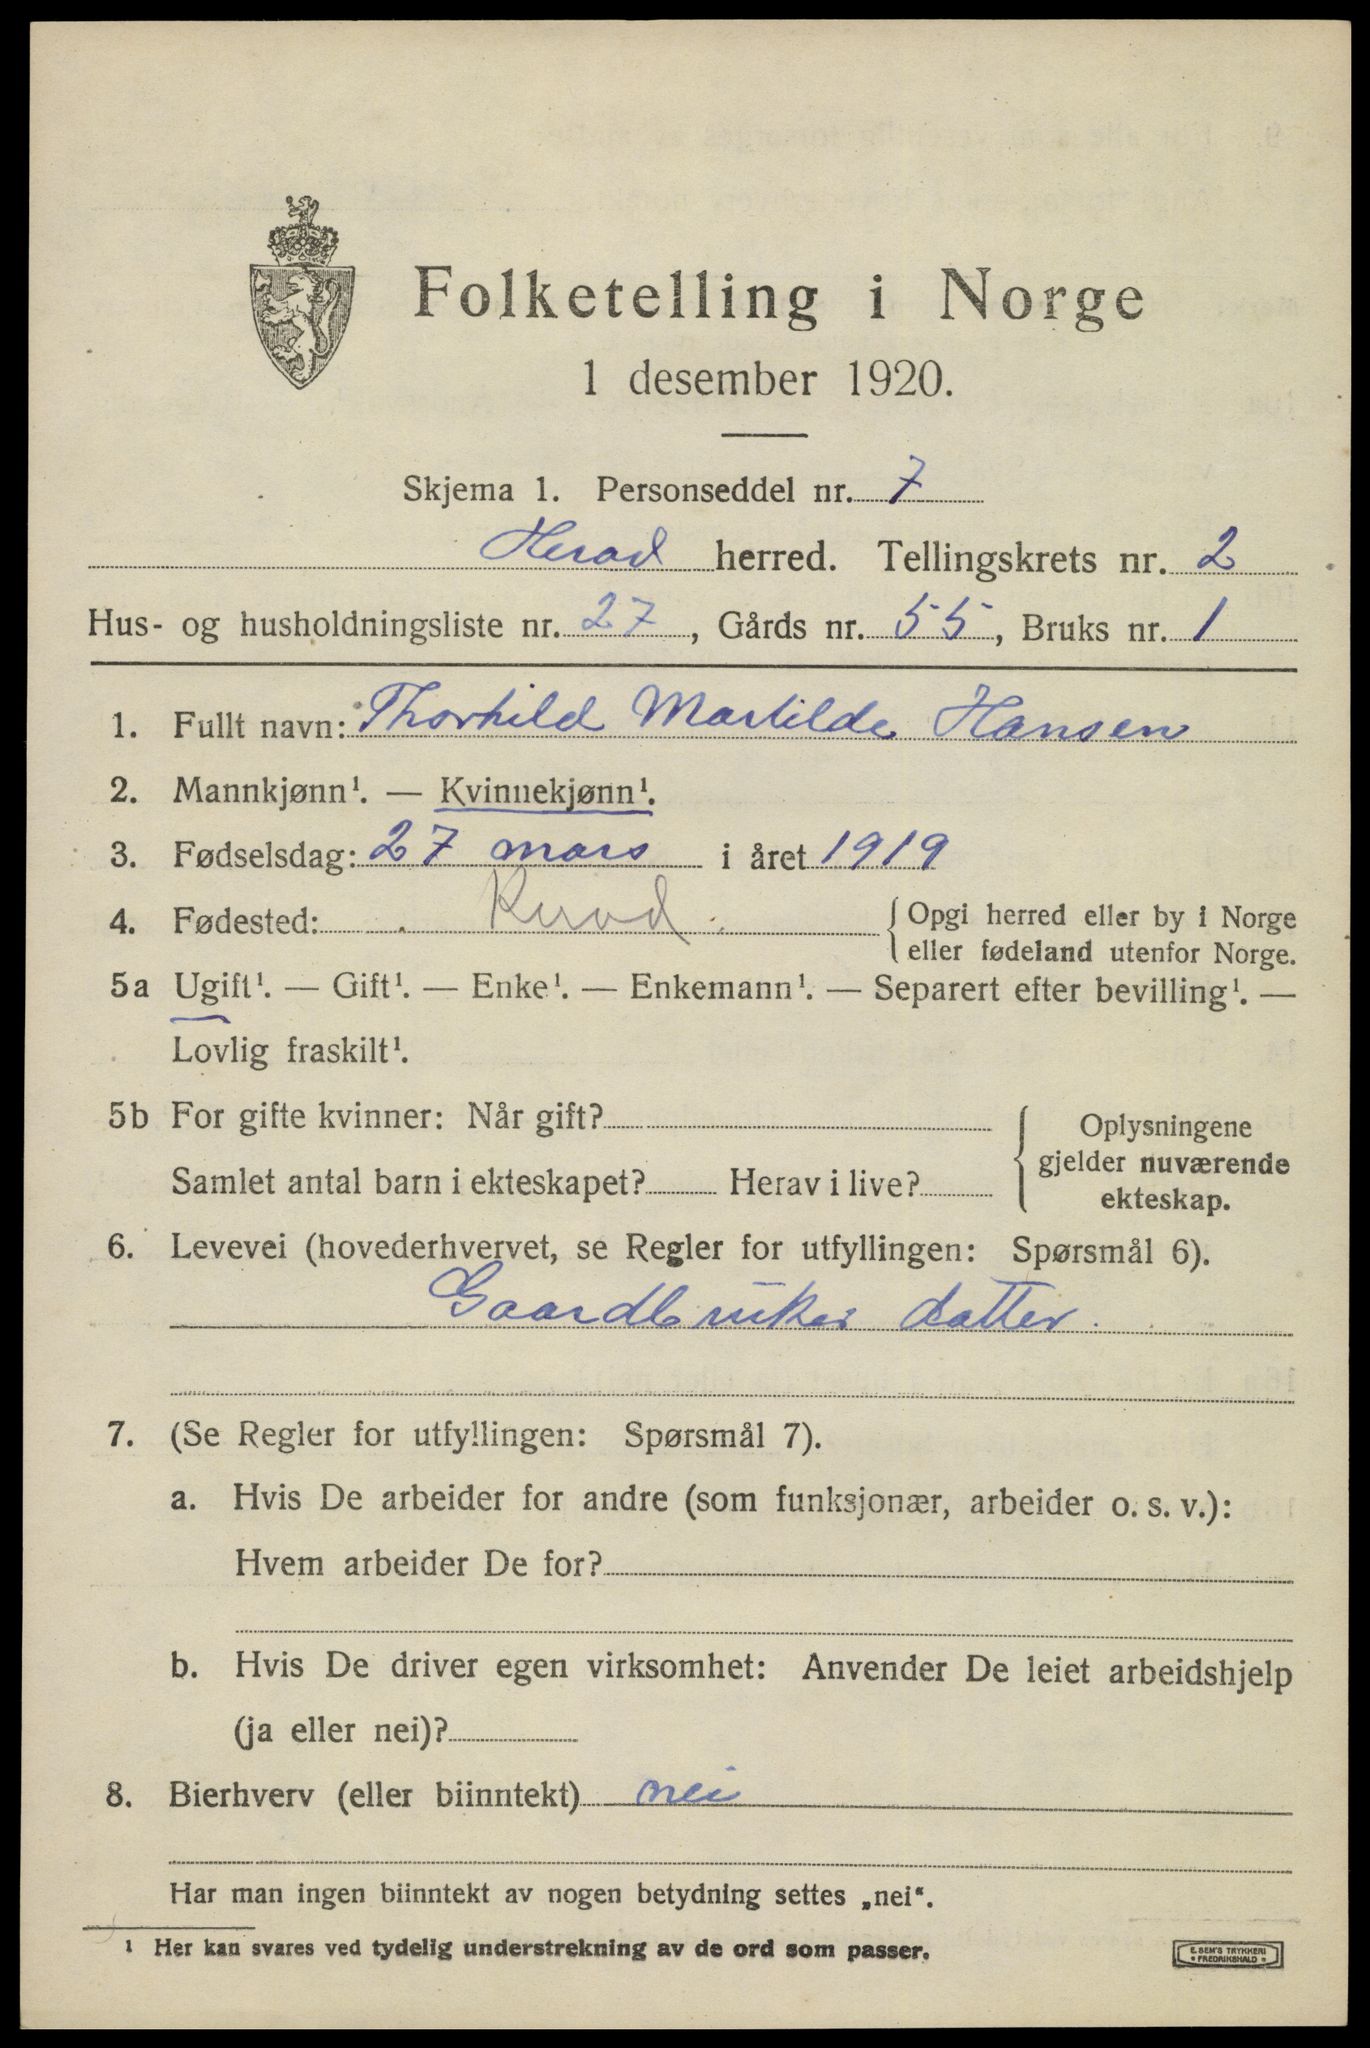 Folketelling i Norge
1 desember 1920.
Skjema 1. Personseddel nr. 7
Herad herred. Tellingskrets nr. 2
Hus- og husholdningsliste nr. 27, Gårds nr. 55, Bruks nr. 1
1. Fullt navn: Thorhild Martilde Hansen
2. Mannkjønn¹. — Kvinnekjønn¹.
3. Fødselsdag: 27 mars i året 1919
4. Fødested: Opgi herred eller by i Norge
eller fødeland utenfor Norge.
5a Ugift¹. — Gift¹. — Enke¹. — Enkemann¹. — Separert efter bevilling¹. —
Lovlig fraskilt¹.
5b For gifte kvinner: Når gift?
Samlet antal barn i ekteskapet? Herav i live?
Oplysningene
gjelder nuværende
ekteskap.
6. Levevei (hovederhvervet, se Regler for utfyllingen: Spørsmål 6).
Gaardbruker datter.
7. (Se Regler for utfyllingen: Spørsmål 7).
a. Hvis De arbeider for andre (som funksjonær, arbeider o. s. v.):
Hvem arbeider De for?
b. Hvis De driver egen virksomhet: Anvender De leiet arbeidshjelp
(ja eller nei)?
8. Bierhverv (eller biinntekt) nei
Har man ingen biinntekt av nogen betydning settes „nei“.
¹ Her kan svares ved tydelig understrekning av de ord som passer.
E. SEM'S TRYKKERI
• FREDRIKSHALD •